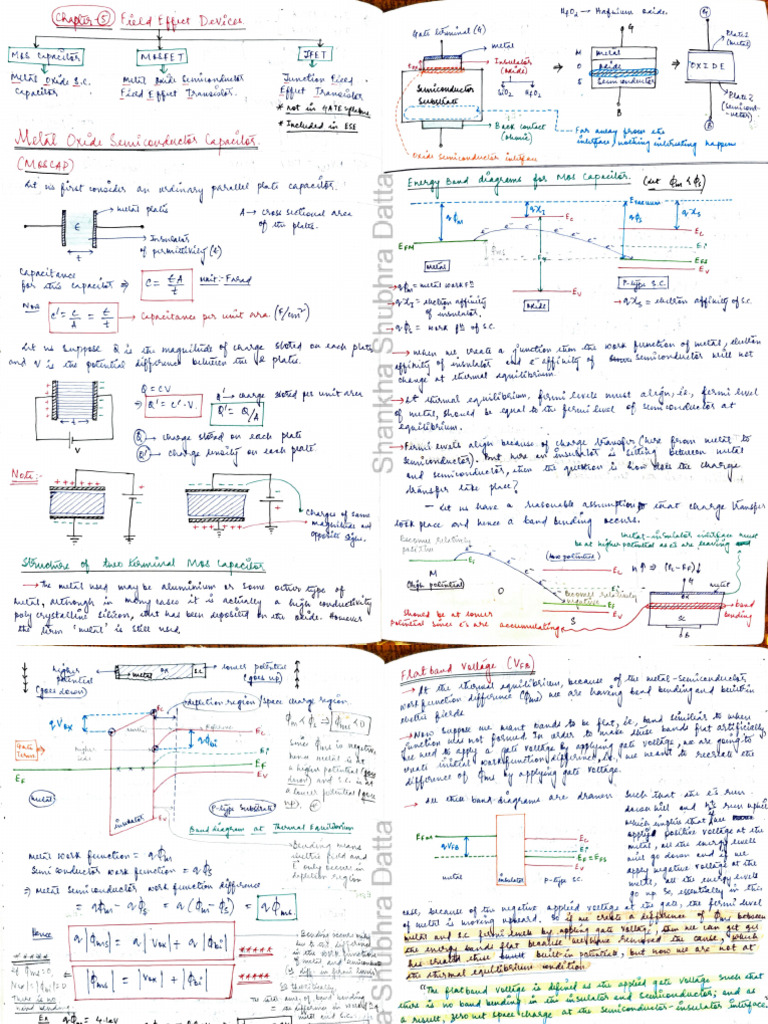 Chapter-5 Field Effect Devices.
MOS Capacitor
MOSFET
JFET
Metal Oxide S.C. Capacitor.
Metal Oxide Semiconductor Field Effect Transistor.
Junction Field Effect Transistor
* Not in GATE syllabus
* Included in ESE
Metal Oxide Semiconductor Capacitor.
(MOSCAP)
Let us first consider an ordinary parallel plate capacitor.
metal plates
A → cross sectional area of the plates.
Insulator of permittivity (ϵ)
Capacitance for this capacitor ⇒ C = ϵA/t unit:- Farad
Now C' = C/A = ϵ/t → Capacitance per unit area (F/cm²)
Let us suppose Q is the magnitude of charge stored on each plate
and V is the potential difference between the 2 plates.
Q = CV
Q' → charge stored per unit area
⇒ Q' = C'·V. Q' = Q/A
Q → charge stored on each plate
Q' → charge density on each plate.
Note:-
Charges of same magnitude and opposite signs.
Structure of two terminal MOS Capacitor
→ The metal used may be aluminium or some other type of
metal, although in many cases it is actually a high conductivity
poly crystalline silicon, that has been deposited on the oxide. However
the term 'metal' is still used.
HfO₂ → Hafnium oxide.
Gate terminal (G)
metal
Insulator (oxide)
SiO₂ HfO₂
Semiconductor Substrate
Back contact (ohmic)
Oxide semiconductor interface
M metal
O oxide
S Semiconductor
G
B
Plate 1 (metal)
OXIDE
Plate 2 (semiconductor)
Far away from the interface, nothing interesting happen
Energy Band diagrams for MOS Capacitor. (Let ϕm < ϕs)
Evacuum
qϕm
qχi
qϕs
qχs
EFM
Ec
Ei
EFS
Ev
metal
oxide
P-type S.C.
→ qϕm = metal work fⁿ
→ qχi = electron affinity of insulator.
→ qϕs = work fⁿ of S.C.
→ qχs = electron affinity of S.C.
→ When we create a junction then the work function of metal, electron
affinity of insulator and e⁻ affinity of semiconductor will not
change at thermal equilibrium.
→ At thermal equilibrium, fermi levels must align, i.e, fermi level
of metal, should be equal to the fermi level of semiconductor at
equilibrium.
→ Fermi levels align because of charge transfer (here from metal to
semiconductor). But here an insulator is sitting between metal
and semiconductor, then the question is how does the charge
transfer take place?
– Let us have a reasonable assumption that charge transfer
took place and hence a band bending occurs.
Become relatively positive
metal-insulator interface must be at higher potential as e⁻s are leaving
(low potential)
M
(high potential)
O
S
Become relatively negative
should be at lower potential since e⁻s are accumulating
metal
OX
SC
band bending
higher potential (goes down)
metal
OX
S.C.
lower potential (goes up)
depletion region / space charge region
qVox
qϕbi
Gate Term.
EF
Ec
Ei
Ev
metal
insulator
P-type Substrate
ϕm < ϕs ⇒ ϕms < 0
Since ϕms is negative hence metal is at a higher potential (goes down) and S.C. is at a lower potential (goes up).
Band diagram at Thermal Equilibrium
→ Bending means electric field and E only occurs in depletion region
metal work function = qϕm
Semiconductor work function = qϕs
⇒ metal Semiconductor work function difference
= qϕm - qϕs = q(ϕm - ϕs) = qϕms
Hence
q|ϕms| = q|Vox| + q|ϕbi|
|ϕms| = |Vox| + |ϕbi|
There is no band bending.
Flat band Voltage (VFB)
→ At the thermal equilibrium, because of the metal-Semiconductor
work function difference (ϕms) we are having band bending and built-in
electric fields.
→ Now suppose we want bands to be flat, i.e, band similar to when
junction was not formed. In order to make these bands flat artificially
we need to apply a gate voltage by applying gate voltage, we are going to
create initial work function difference, i.e, we meant to recreate the
difference of ϕms by applying gate voltage.
→ All these band diagrams are drawn such that the e⁻s run down hill
EFm
qVFB
Ec
Ei
EF = EFS
Ev
metal
insulator
P-type S.C.
applied positive voltage at the metal, all the energy levels will go down and if we apply negative voltage at the metal, all the energy levels go up. So, essentially in this
case, because of the negative applied voltage at the gate, the fermi level
of metal is moving upward. So if we create a difference of ϕms between
metal and SC fermi levels by applying gate voltage, then we can get
the energy bands flat because
the thermal equilibrium condition.
"The flat band voltage is defined as the applied gate voltage such that
there is no band bending in the insulator and semiconductor; and as
a result, zero net space charge at the semiconductor-insulator interface."
Shankha Shubhra Datta